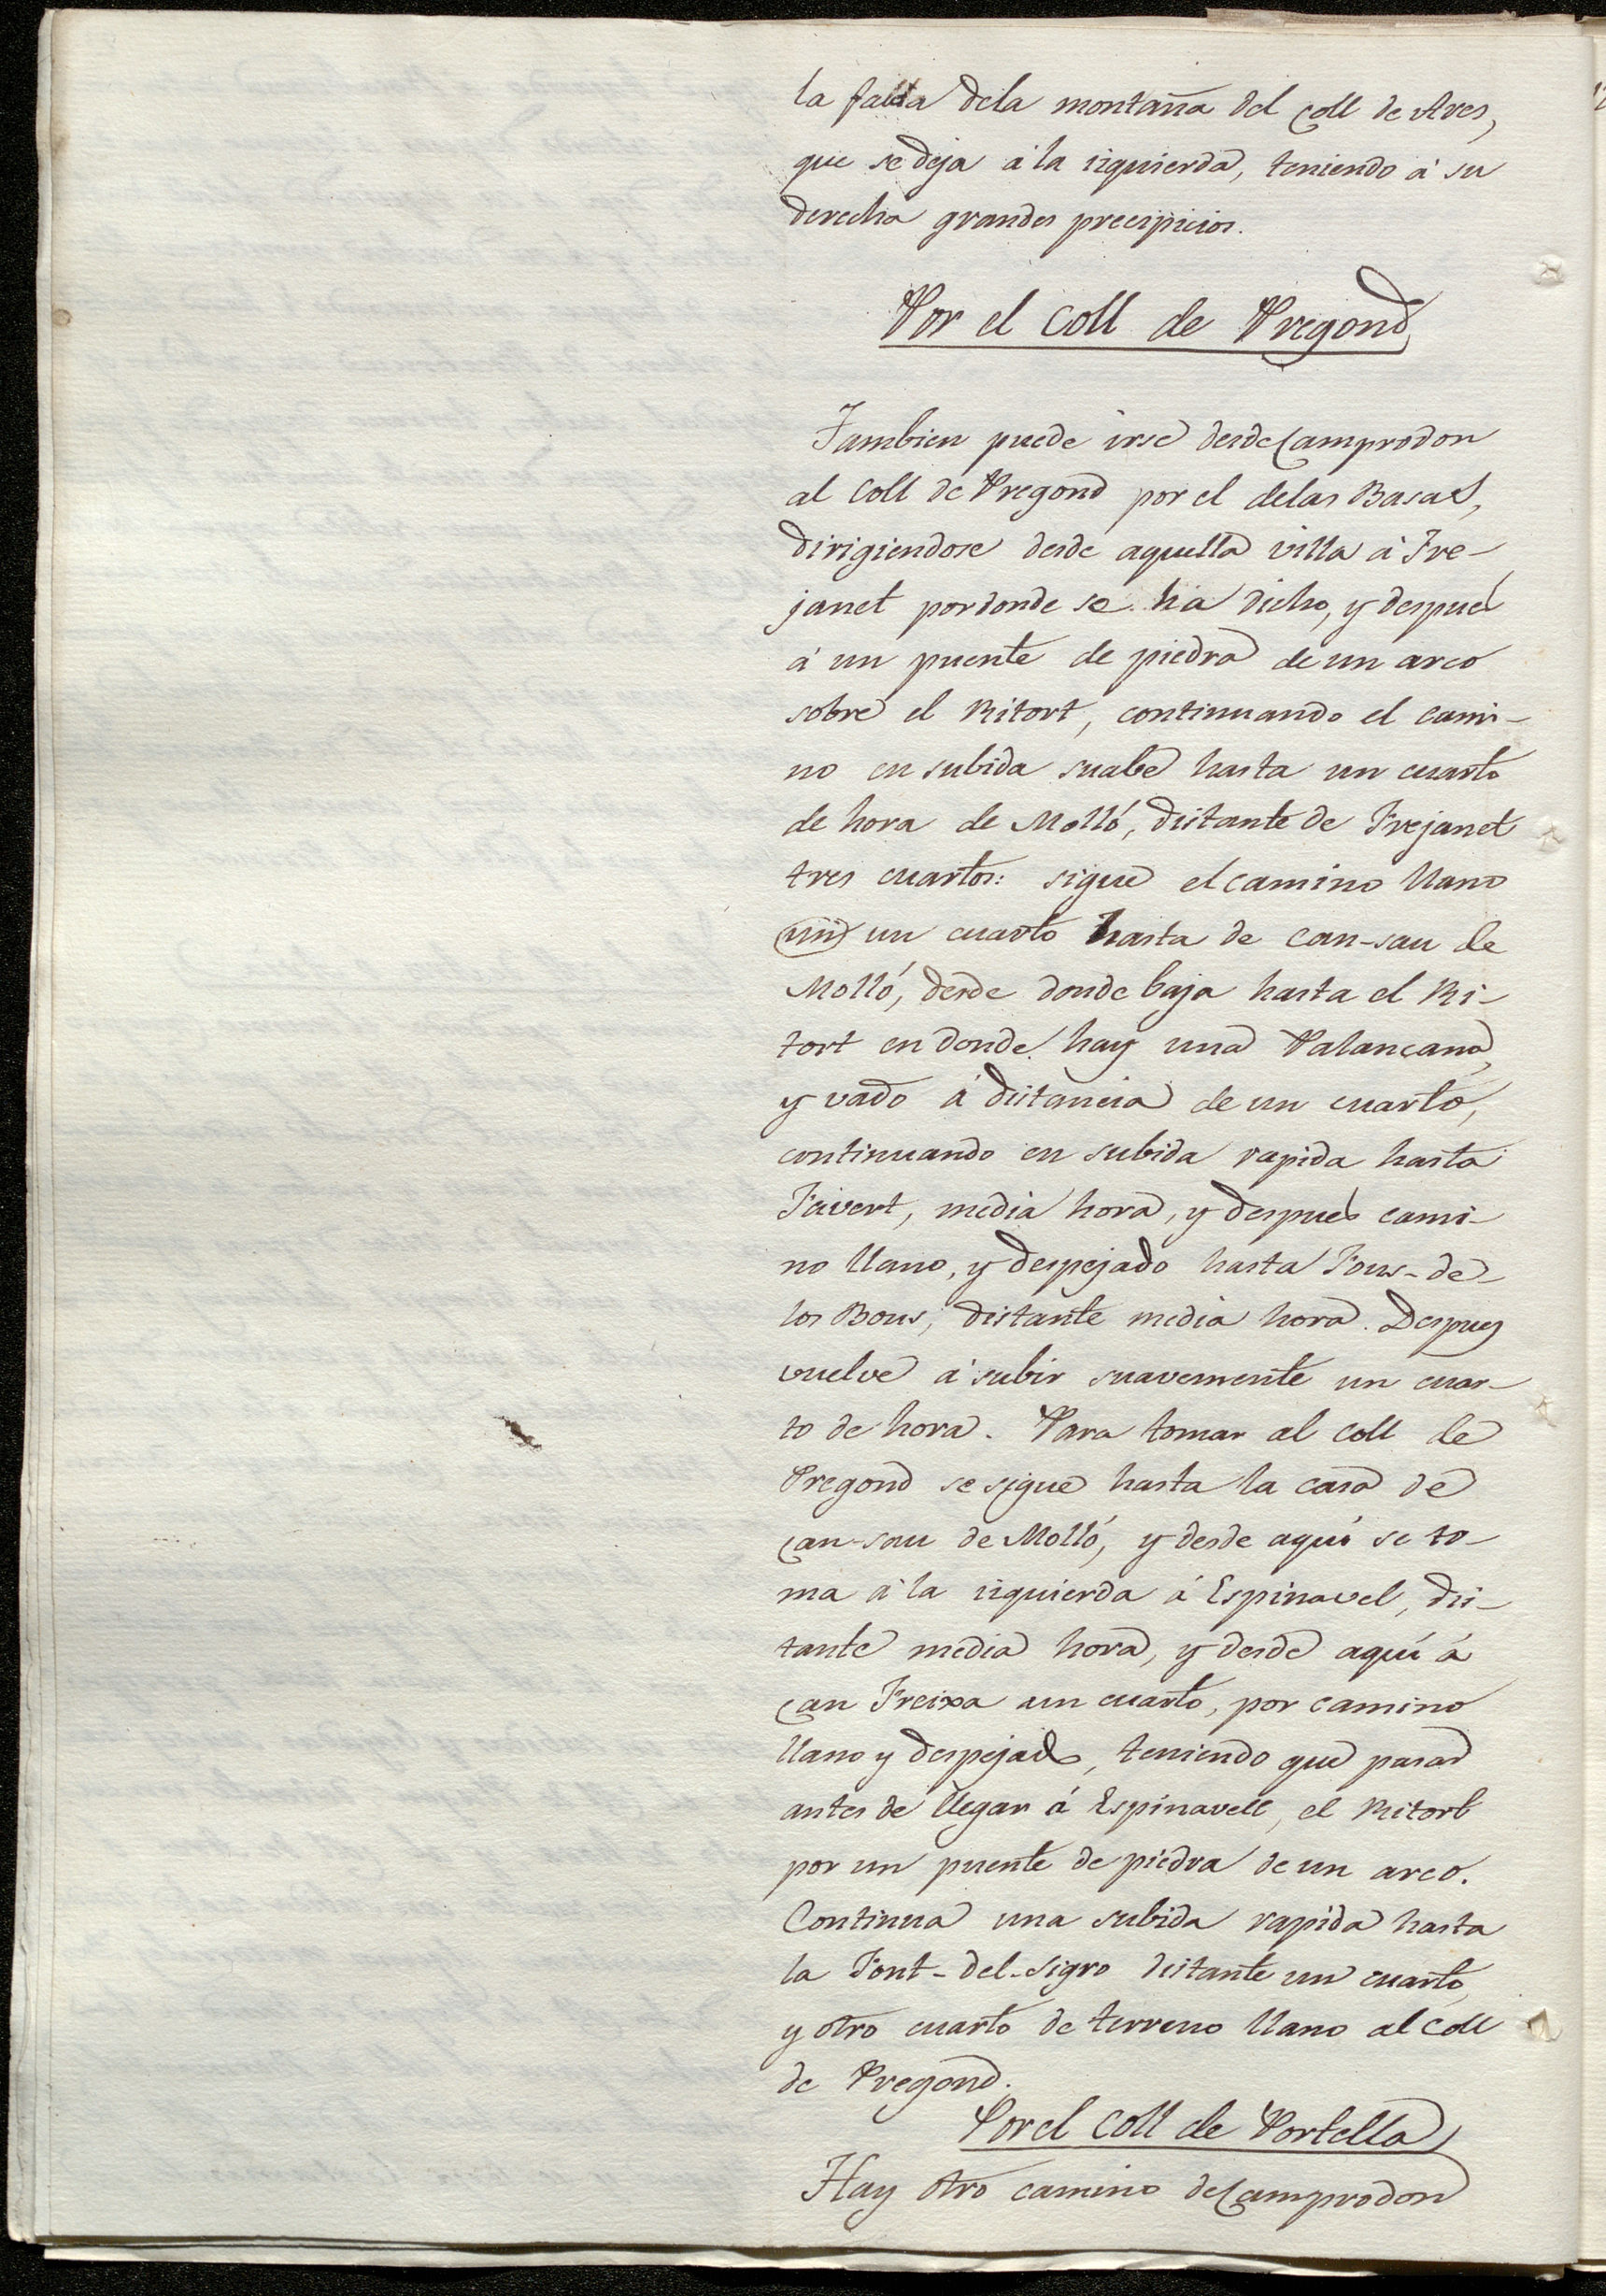 la falda dela montaña del Coll de Ares,
que se deja á la izquierda, teniendo á su
derecha grandes precipicios.
Por el Coll de Pregond
Tambien puede irse desde Camprodon
al Coll de Pregond por el delas Basas,
dirigiendose desde aquella villa á Fre-
janet por donde se ha dicho, y despues
á un puente de piedra de un arco
sobre el Ritort, continuando el cami-
no en subida suabe hasta un cuarto
de hora de Molló, distante de Frejanet
tres cuartos: sigue el camino llano
un cuarto hasta de Can-sau de
Molló, desde donde baja hasta el Ri-
tort en donde hay una Palancana,
y vado á distancia de un cuarto,
continuando en subida rapida hasta
Faivert, media hora, y despues cami-
no llano, y despejado hasta Fous-de-
los Bous, distante media hora. Despues
vuelve á subir suavemente un cuar-
to de hora. Para tomar al Coll de
Pregond se sigue hasta la casa de
Can-sau de Molló, y desde aquí se to-
ma á la izquierda á Espinavel, dis-
tante media hora, y desde aquí á
Can Freixa un cuarto, por camino
llano y despejado, teniendo que pasar
antes de llegar á Espinavell, el Ritort
por un puente de piedra de un arco.
Continua una subida rapida hasta
la Font-del-Sigro distante un cuarto,
y otro cuarto de terreno llano al Coll
de Pregond.
Por el Coll de Portella
Hay otro camino de Camprodon